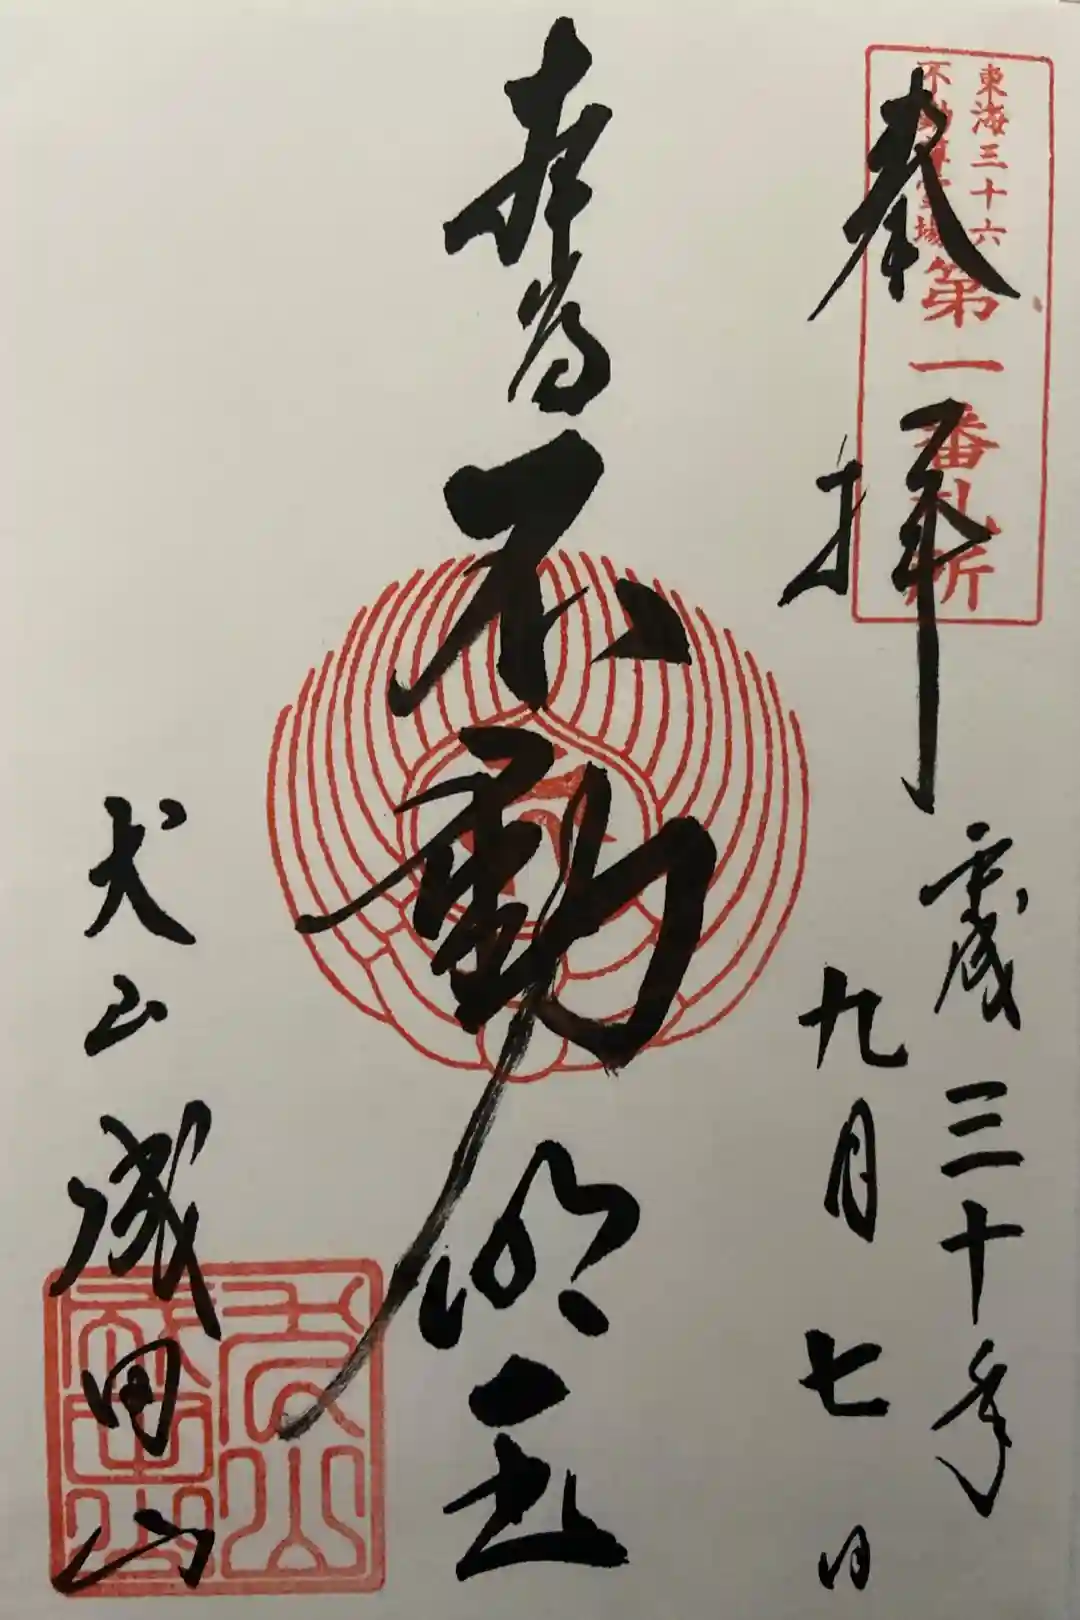 東海三十六
不動尊霊場
第一番札所
奉拝
平成三十年
九月七日
不動明王
犬山成田山